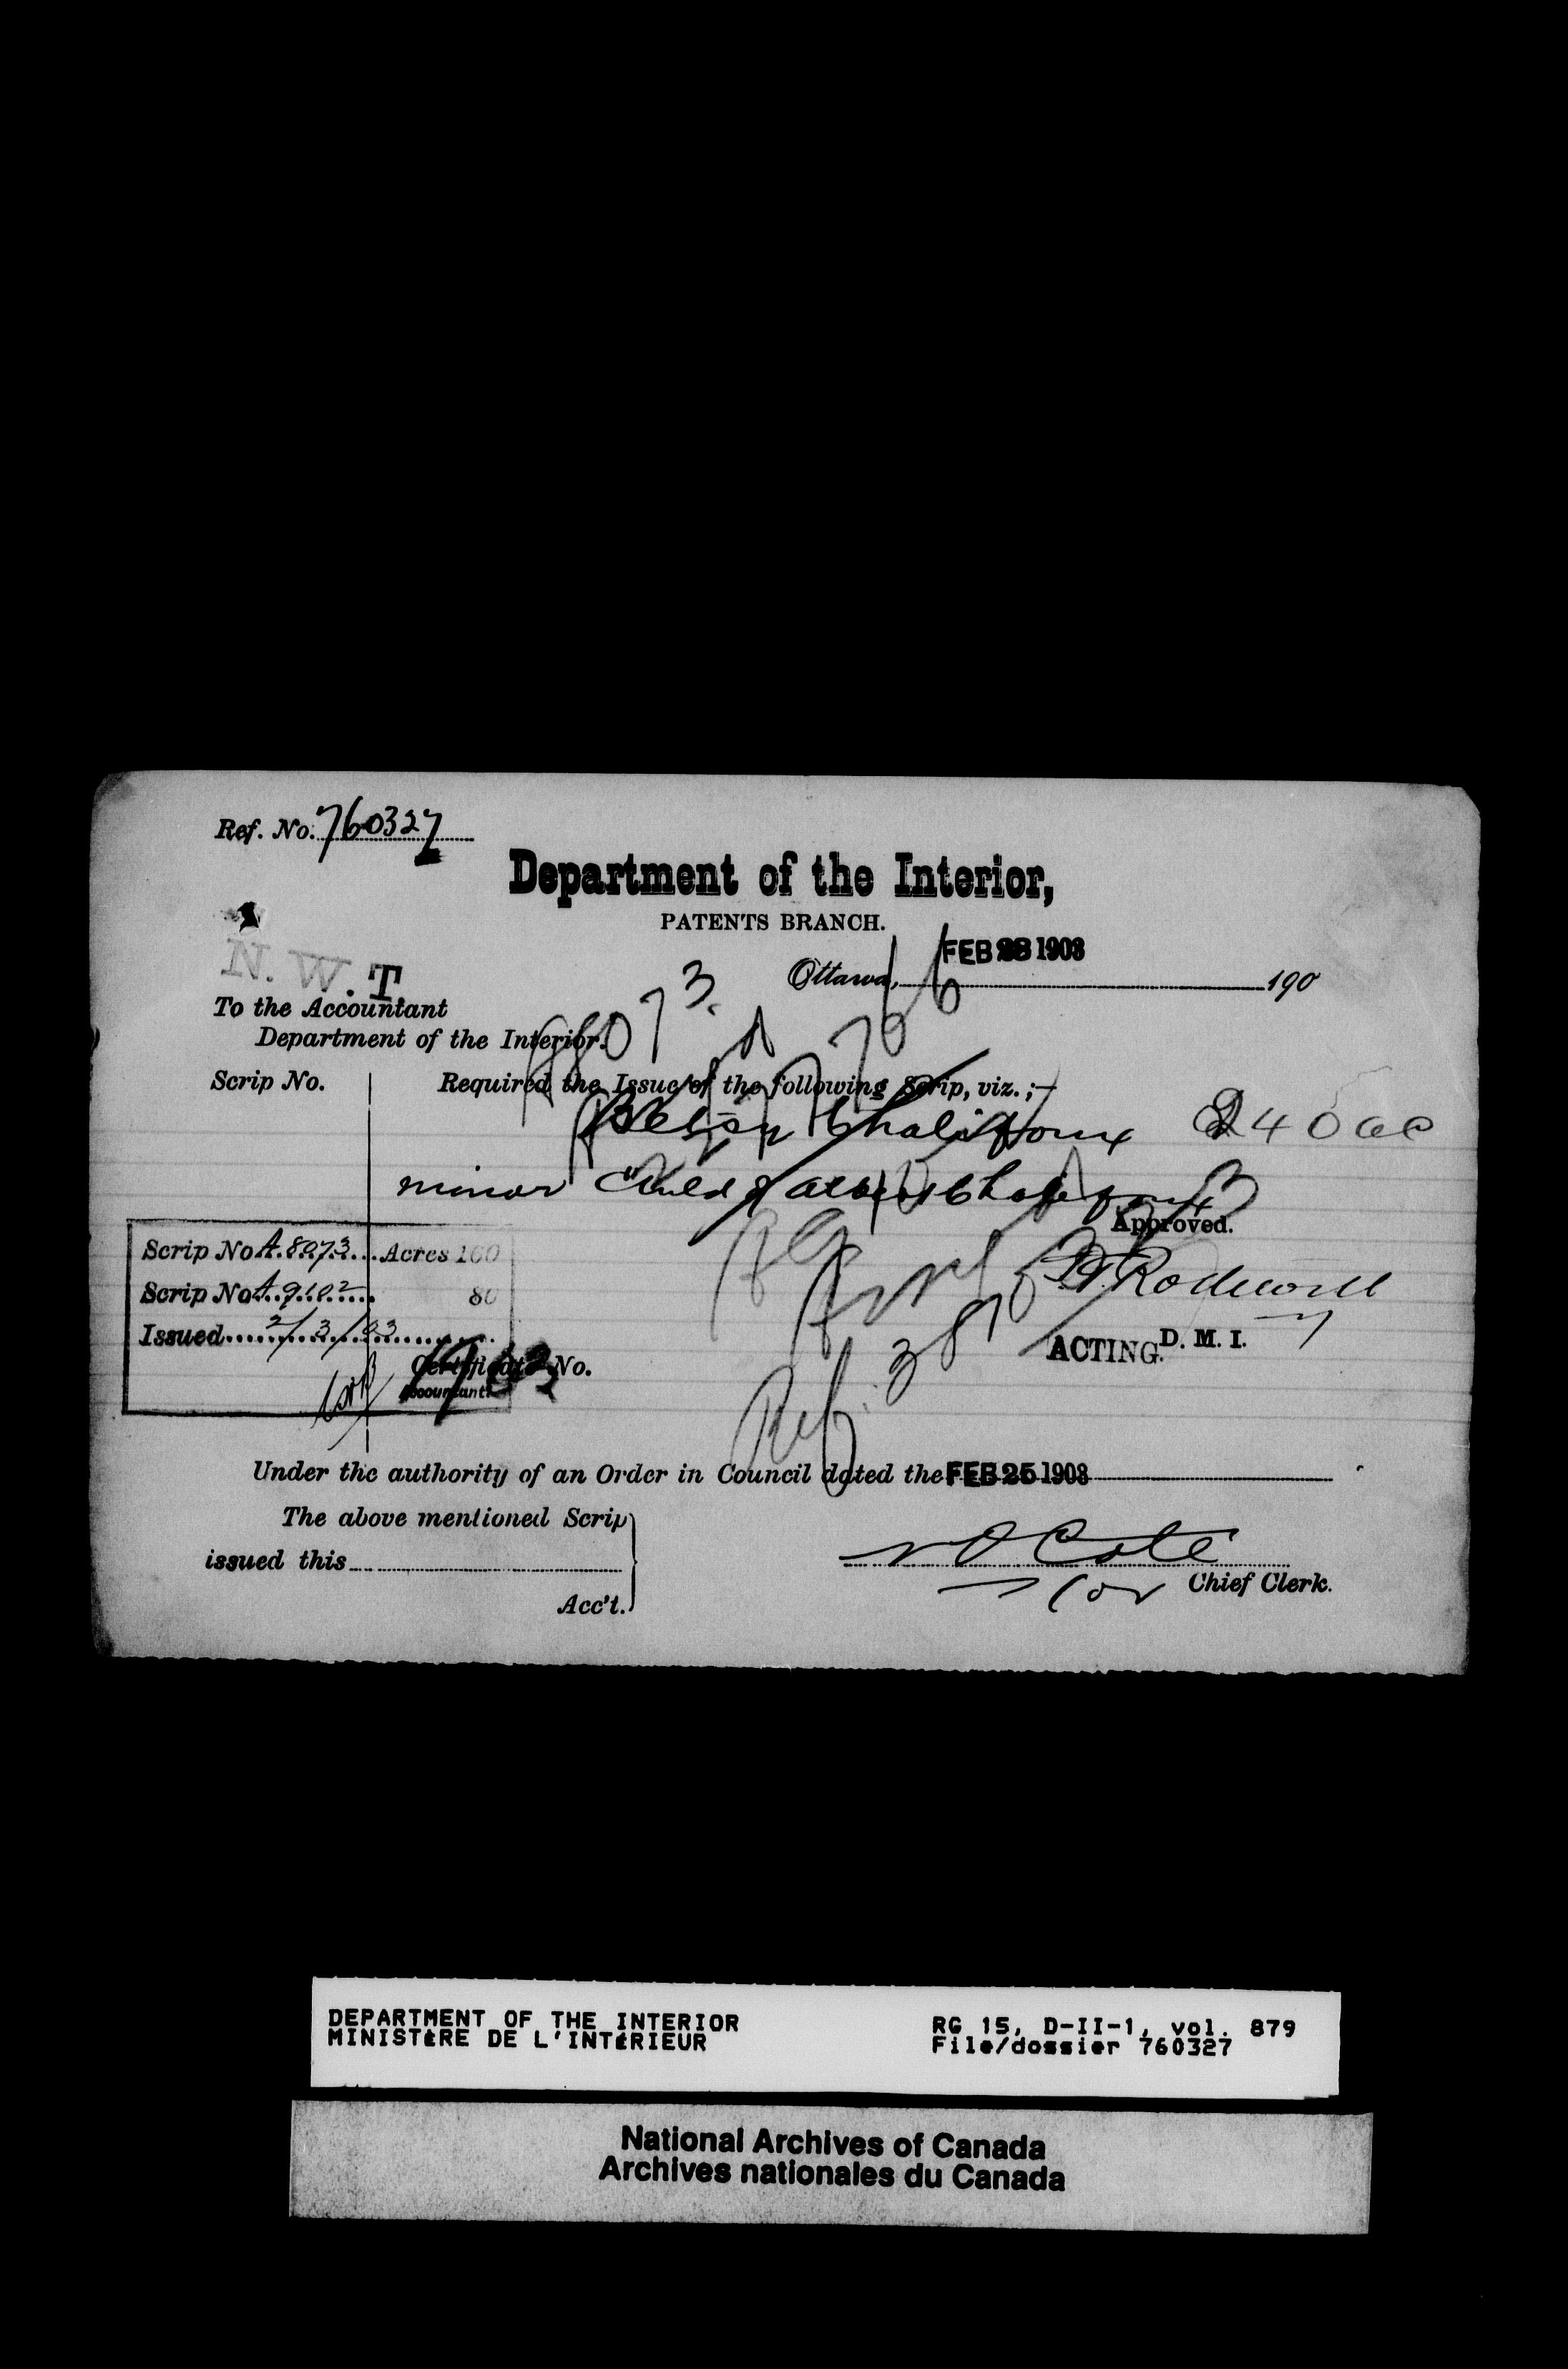 Ref. No. 760327
Department of the Interior,
PATENTS BRANCH.
FEB 28 1903
Ottawa, 190
N. W. T.
To the Accountant
Department of the Interior.
8073
Scrip No. Required the Issue of the following Scrip, viz.;—
Betsy Chalifoux 240 ac
minor child of Albert Chalifoux
Approved.
Scrip No. A.8073 Acres 160
Scrip No. A.9102 80
Rodewall
Issued 2/3/03
ACTING D. M. I.
Certificate No.
Accountant.
Ref.
Under the authority of an Order in Council dated the FEB 25 1903
The above mentioned Scrip
issued this
N O Cote
for Chief Clerk.
Acc't.
DEPARTMENT OF THE INTERIOR RG 15, D-II-1, vol. 879
MINISTÈRE DE L'INTÉRIEUR File/dossier 760327
National Archives of Canada
Archives nationales du Canada